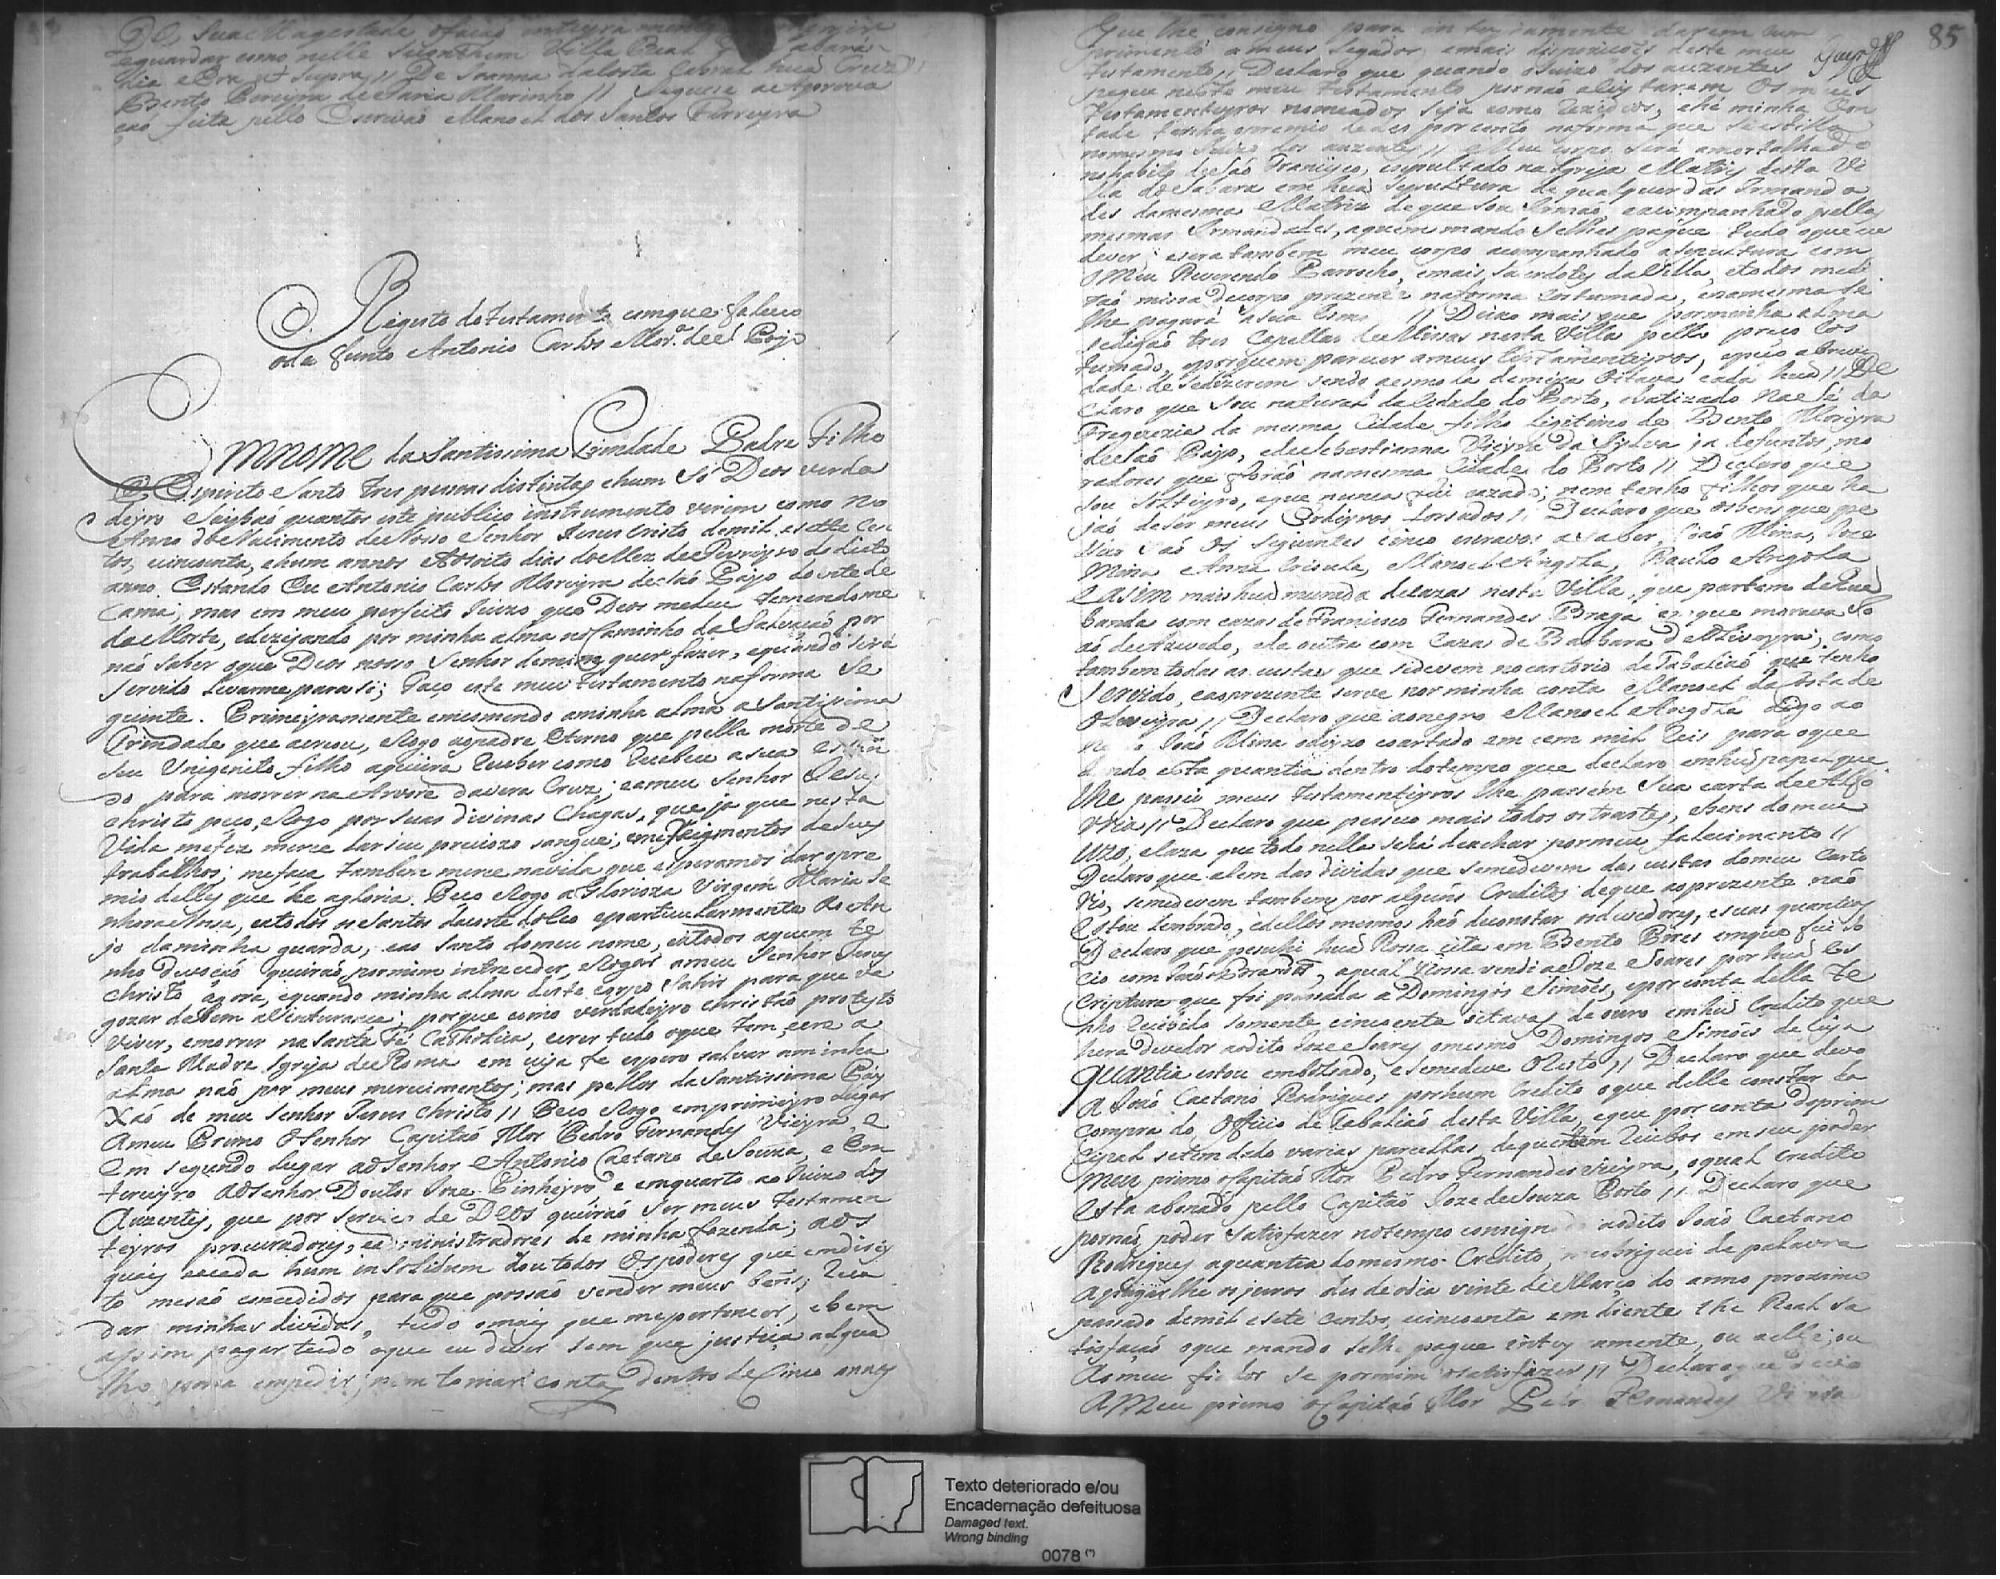 De Sua Magestade ofação inteyramente
eguardar como nelle seconthem Villa Real
dia e Era ut Supra // De Joanna dacosta Cabral huã Cruz //
Bento Pereyra de Faria Marinho // Seguese a Aprova
çaõ feita pello Escrivaõ Manoel dos Santos Ferreyra
Registo do testamento comque faleceo
oda funto Antonio Carlos Mor.ª deS. Payo
Em nome da Santissima Trindade Padre Filho
E Espirito Santo tres pessoas distintas ehum Só Deos verda
deyro Saybaõ quantos este publico instrumento virem como No
Anno do Nascimento deNosso Senhor Jesus Cristo demil esette Cen
tos, cincoenta, ehum annos Aos oito dias do Mez de Fevreyro do dicto
anno. Estando Eu Antonio Carlos Moreyra desaõ Payo doente de
Cama, mas em meu perfeito Juizo que Deos medeu temendome
da Morte, edezejando por minha alma no Caminho da Salvaçaõ por
naõ saber oque Deos nosso Senhor demim quer fazer, equando será
Servido levarme para si; Faço este meu Testamento naforma Se
guinte. Primeyramente encomendo aminha alma a Santissima
Trindade que acriou, eRogo aopadre Eterno que pella morte de
seu Unigenito filho aqueira receber como recebeu a sua estan
do para morrer na Arvore davera Cruz; eameu Senhor Jesu
christo peço, eRogo por suas divinas Chagas, que ja que nesta
Vida mefez merce dar seu preciozo sangue, emeressimentos deseus
trabalhos; mefaça tambem merce navida que esperamos dar opre
mio delles que he agloria. Peço eRogo a Glorioza Virgem Maria Se
nhora Nossa, eatodos os Santos daCorte doCeo eparticularmente Ao An
jo daminha guarda, eao Santo domeu nome, eatodos aquem te
nho devoçaõ queiraõ por mim interceder, eRogar ameu Senhor Jesus
christo agora, equando minha alma deste corpo Sahir para que va
gozar da Bem aVenturança; porque como verdadeyro christaõ protesto
viver, emorrer na Santa Fé Catholica, ecrer tudo oque tem, ecre a
Santa Madre Igreja de Roma em cuja fe espero salvar aminha
alma naõ por meus merecimentos; mas pellos da Santissima Pay
Xaõ de meu Senhor Jesus christo // Peço eRogo emprimeyro Lugar
Ameu Primo OSenhor Capitaõ Mor Pedro Fernandes Vieyra, e
Em segundo lugar aoSenhor Antonio Caetano deSouza, e Em
terceyro AoSenhor Doutor Joze Pinheyro e emquarto ao Juizo dos
Auzentes, que por serviço de DEOS queiraõ Ser meus Testamen
teyros procuradores, eadministradores de minha fazenda; aos
quais acada hum insolidum dou todos Os poderes que emdirey
to mesaõ concedidos para que possaõ vender meus bens, Reca
dar minhas dividas, tudo omais que mepertencer, ebem
assim pagar tudo oque eu dever sem que justiça algua
lho possa empedir, nem tomar conta dentro de Cinco annos
85
Que lhe consigno para inteyramente darem Cum
primento ameus Legados emais dispozicoēs deste meu
testamento // Declaro que quando oJuizo dos auzentes
pegue neste meu testamento por naõ aceytarem Os meus
testamenteyros nomeados seja como reziduos, ehé minha Von
tade tenha opremio dedes por cento naforma que seestilla
nomesmo Juizo dos auzentes // Meu corpo será amortalhado
nohabito deSaõ Francisco, esepultado na Igreja Matriz desta Vi
lla do Sabara em huã Sepultura de qualquer das Irmanda
des damesma Matriz deque Sou Irmaõ, eacompanhado pellas
mesmas Irmandades, aquem mando selhes pague tudo oque eu
dever; esera tambem meu corpo acompanhado asepultura com
OMeu Reverendo Parrocho, emais Sacerdotes daVilla, etodos medi
raõ missa decorpo prezente naforma costumada, enamesma se
lhe pagará asua Esmo // Deixo mais que porminha alma
sedigaõ tres Capellas deMissas nesta Villa pello preço Cos
tumado, eporquem parecer ameus testamenteyros, epeço abrevi
dade de sedizerem sendo aesmola demeya Oitava cada huã // De
Claro que Sou natural daCidade do Porto, ebatizado NaSé da
Freguezia da mesma Cidade filho legitimo de Bento Moreyra
deSaõ Payo, edeSebastianna Vieyra da Sylva ja defuntos, mo
radores que foraõ namesma Cidade do Porto // Declaro que
Sou Solteyro, eque nunca fui cazado; nem tenho filhos que ha
jaõ deSer meus Erdeyros forsados // Declaro que osbens que pos
suo saõ Os seguintes cinco escravos a saber Joaõ Mina, Joze
Mina Anna Criola, Manoel Angola, Paulo Angola
Easim mais huã murada decazas nesta Villa, que partem dehuã
banda com cazas deFrancisco Fernandes Braga, em que morava Jo
aõ deAzevedo, eda outra com Cazas de Barbara deOliveyra; como
tambem todas as custas que sedevem nocartorio deTabaliaõ que tenho
Servido, eaoprezente serve por minha conta Manoel da Costa de
Oliveyra // Declaro que aonegro Manoel Angola digo ao
Joaõ Mina odeyxo coartado em cem mil Reis para oque
dando esta quantia dentro dotempo que declaro emhũ papel que
lhe passei meus testamenteyros lhe passem Sua carta deAlfo
rria // Declaro que possuo mais todos ostrastes, ebens domeu
uzo, eCaza que todo nella sehá deachar por meu falecimento //
Declaro que alem das dividas que semedevem das custas domeu Carto
rio, semedevem tambem por alguns Creditos deque aoprezente naõ
estou lembrado, edelles mesmos haõ deconstar osdevedores, esuas quantias
Declaro que possuhi huã Rossa cita em Bento Pires emque fui so
cio com Joaõ Brandaõ, aqual Rossa vendi aJoze Soares por huã Es
criptura que foi passada a Domingos Simoēs, eporconta della te
nho recebido somente cincoenta oitavas de ouro emhũ Credito que
hera devedor aodito Joze Soares omesmo Domingos Simoēs de cuja
quantia estou embolsado, esemedeve Oresto // Declaro que devo
A Joaõ Caetano Rodrigues porhum Credito oque delle constar da
Compra do Officio de Tabaliaõ desta Villa, eque por conta doprin
cipal setem dado varias parcellas dequetem Recibos em seu poder
meu primo oCapitaõ Mor Pedro Fernandes Vieyra, oqual Credito
esta abonado pello Capitaõ Joze deSouza Porto // Declaro que
pornaõ poder Satisfazer notempo consignado aodito Joaõ Caetano
Rodrigues aquantia domesmo Credito, meobriguei de palavra
Apagarlhe osjuros des deodia vinte deMarço do anno proximo
passado demil esete centos, cincoenta em diente the Real sa
tisfaçaõ oque mando selhe pague inteyramente, ou aelle, ou
Aomeu fiador se pormim osatisfazer // Declaro que devo
AMeu primo oCapitaõ Mor Pedro Fernandes Vieyra
Texto deteriorado e/ou
Encadernação defeituosa
Damaged text.
Wrong binding
0078 (*)